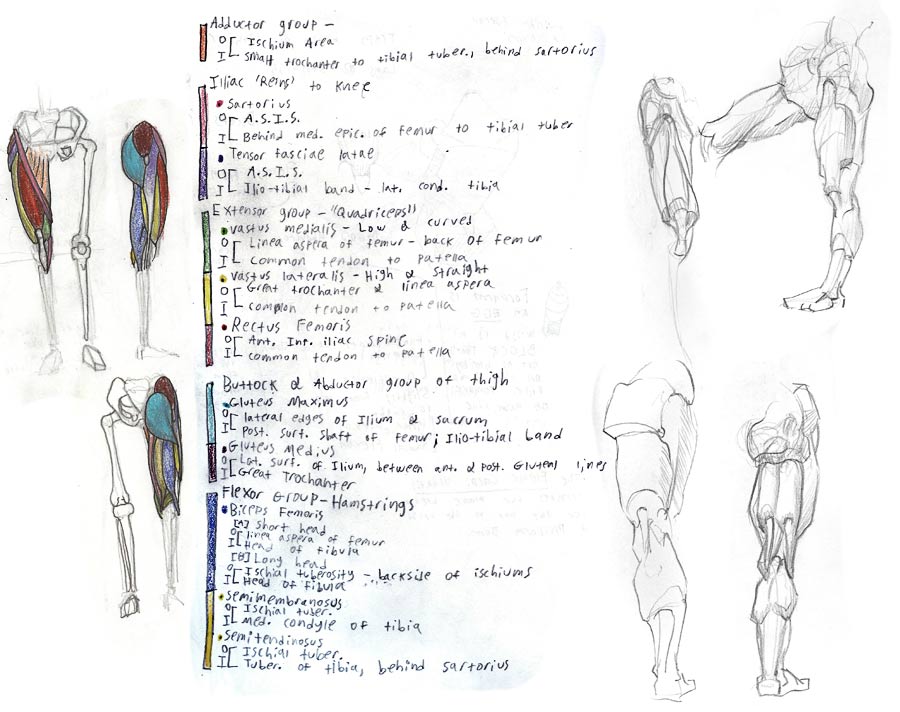 Adductor group -
O Ischium Area
I small trochanter to tibial tuber., behind sartorius
Illiac 'Reins' to Knee
Sartorius
O A.S.I.S.
I Behind med. epic. of femur to tibial tuber
Tensor fasciae latae
O A.S.I.S.
I Ilio-tibial band - lat. cond. tibia
Extensor group - "Quadriceps"
vastus medialis - Low & curved
O Linea aspera of femur - back of femur
I Common tendon to patella
vastus lateralis - High & straight
O Great trochanter & linea aspera
I common tendon to patella
Rectus Femoris
O Ant. Inf. iliac spine
I common tendon to patella
Buttock & Abductor group of thigh
Gluteus Maximus
O lateral edges of Ilium & sacrum
I Post. surf. shaft of femur; Ilio-tibial band
Gluteus Medius
O Lat. surf. of Ilium, between ant. & post. Gluteal lines
I Great Trochanter
Flexor Group - Hamstrings
Biceps Femoris
[A] Short head
O linea aspera of femur
I Head of fibula
[B] Long head
O Ischial tuberosity - backside of ischiums
I Head of fibula
semimembranosus
O Ischial tuber.
I Med. condyle of tibia
semitendinosus
O Ischial tuber.
I Tuber. of tibia, behind sartorius